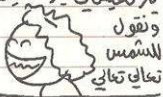 ونقول
للشمس
تعالي تعالي